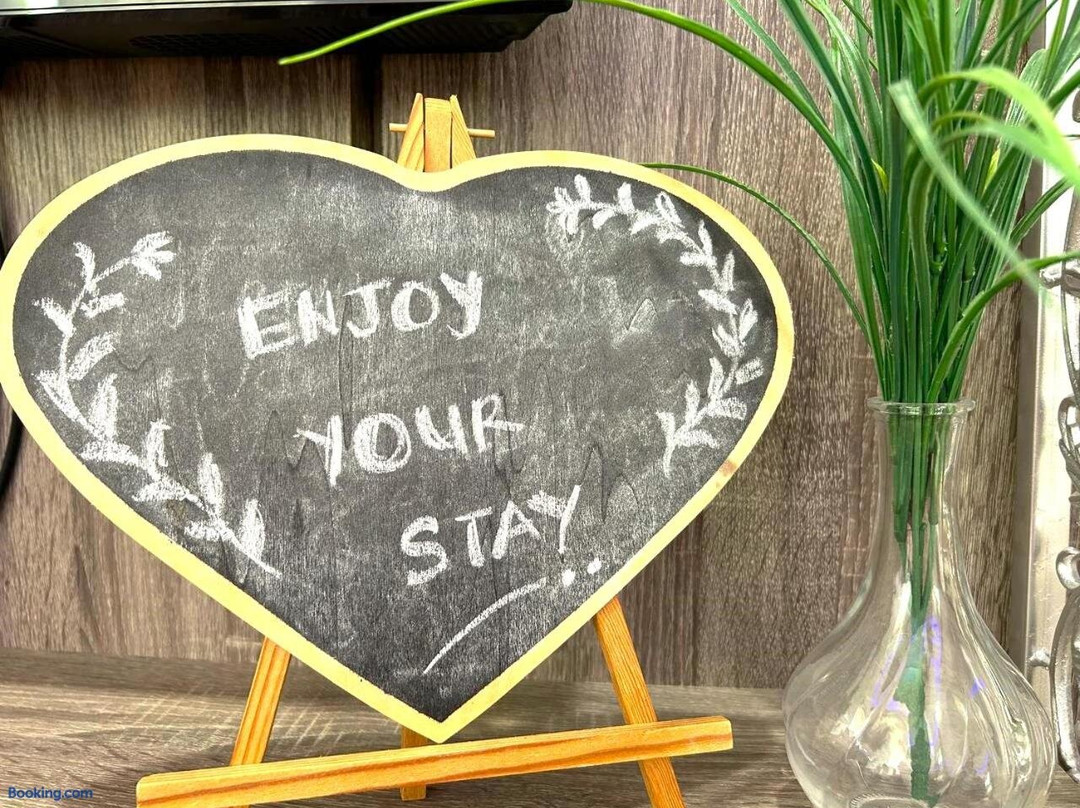 ENJOY
YOUR
STAY
Booking.com